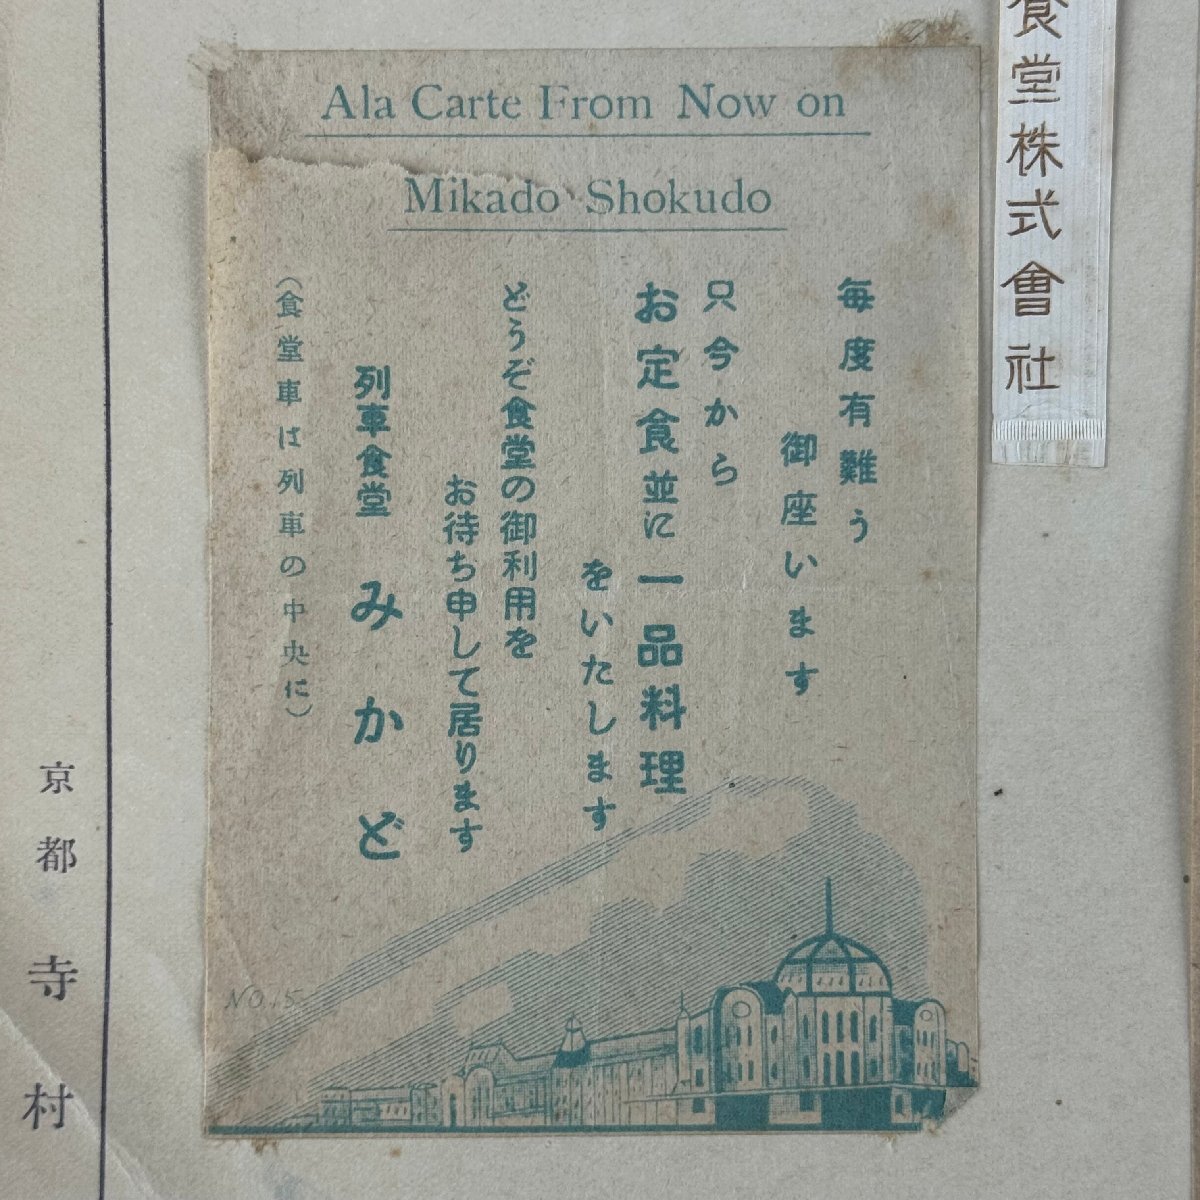 Ala Carte From Now on
Mikado Shokudo
毎度有難う
御座います
只今から
お定食並に一品料理
をいたします
どうぞ食堂の御利用を
お待ち申して居ります
列車食堂 みかど
（食堂車は列車の中央に）
NO.5
食堂株式會社
京都 寺村